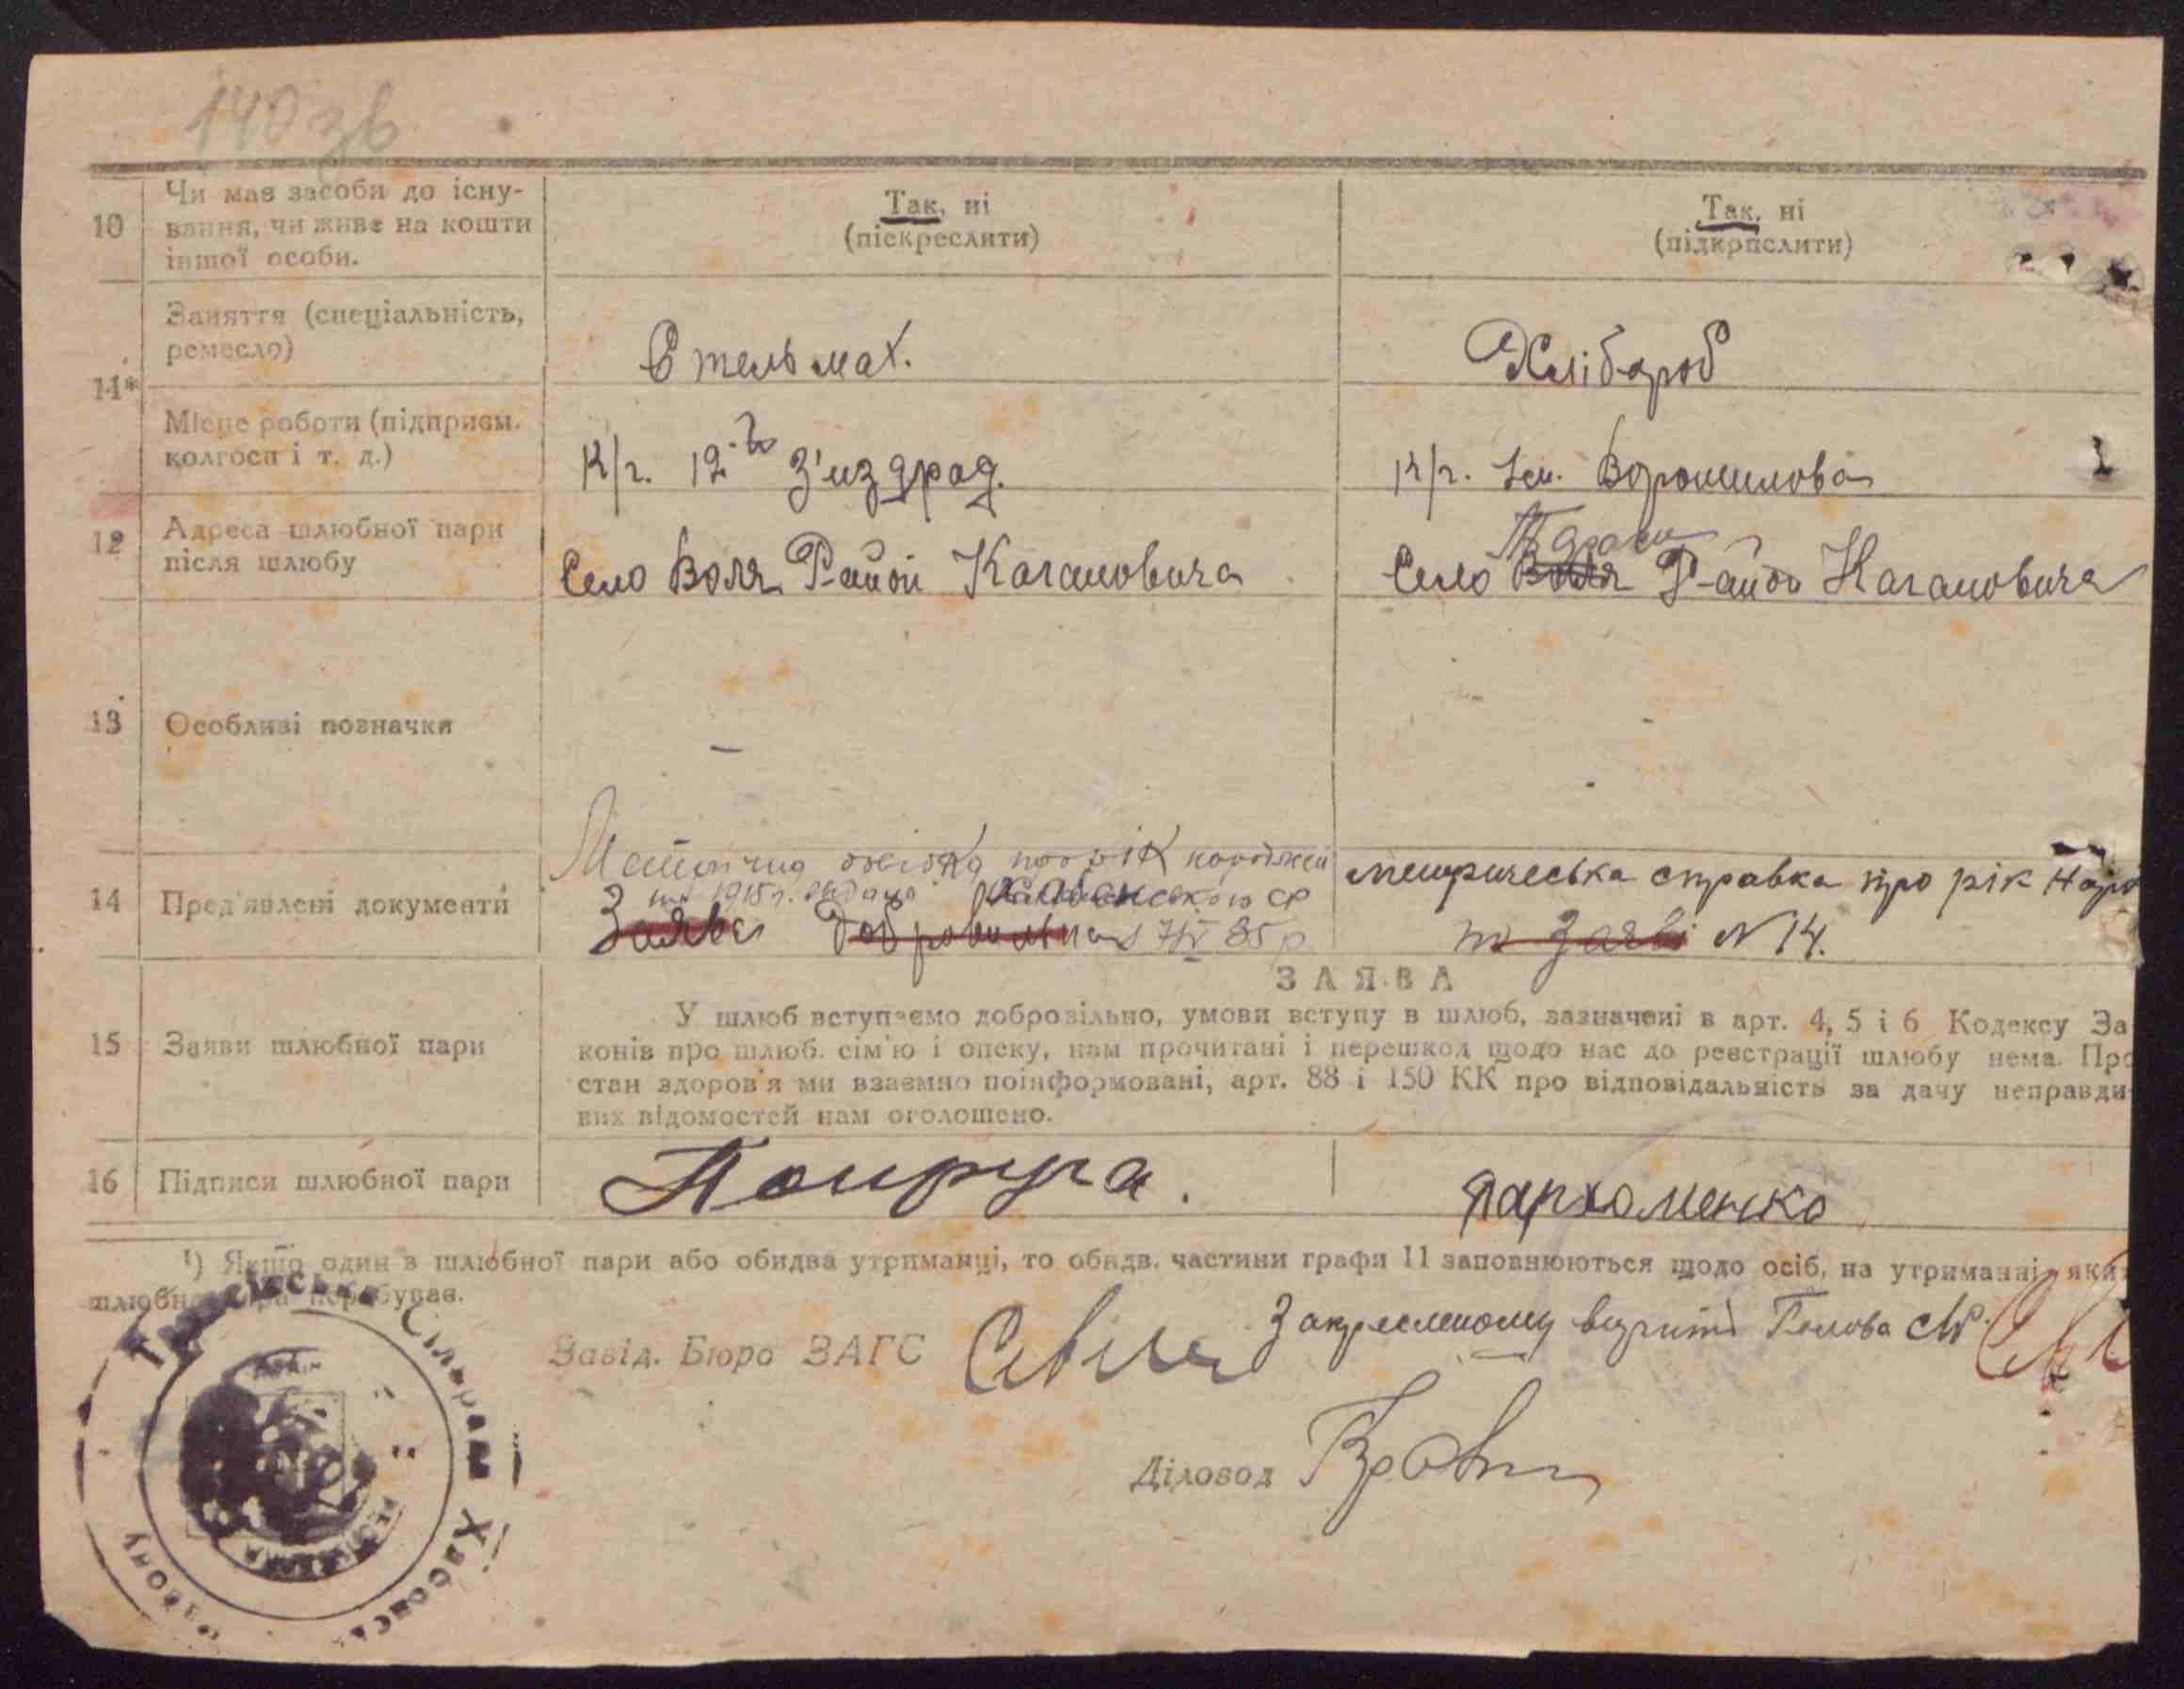 140 зв
10
Чи має засоби до існу-
вання, чи живе на кошти
іншої особи.
Так, ні
(піскреслити)
Так, ні
(підкрислити)
11*
Заняття (спеціальність,
ремесло)
Стельмах.
Хлібороб
Місце роботи (підприєм.
колгосп і т. д.)
К/г. 12-ть З'їздрад.
К/г. Ім. Ворошилова
12
Адреса шлюбної пари
після шлюбу
Село Воля Район Кагановича
Село Воля Район Кагановича
13
Особливі позначки
—
14
Пред'явлені документи
1915 р. видана ср
Заява Добровільна 35 р
метрическа справка про рік Наро
по заяві N 14.
15
Заяви шлюбної пари
ЗАЯВА
У шлюб вступаємо добровільно, умови вступу в шлюб, зазначені в арт. 4, 5 і 6 Кодексу За
конів про шлюб. сім'ю і опеку, нам прочитані і перешкод щодо нас до реєстрації шлюбу нема. Про
стан здоров'я ми взаємно поінформовані, арт. 88 і 150 КК про відповідальність за дачу неправди
вих відомостей нам оголошено.
16
Підписи шлюбної пари
Пархоменко
¹) Якщо один з шлюбної пари або обидва утриманці, то обидв. частини графи 11 заповнюються щодо осіб, на утриманні яки
шлюбна пара перебуває.
Завід. Бюро ЗАГС
Закресленому вірити Голова с/р.
Діловод
Сільрада Хабенськ
району